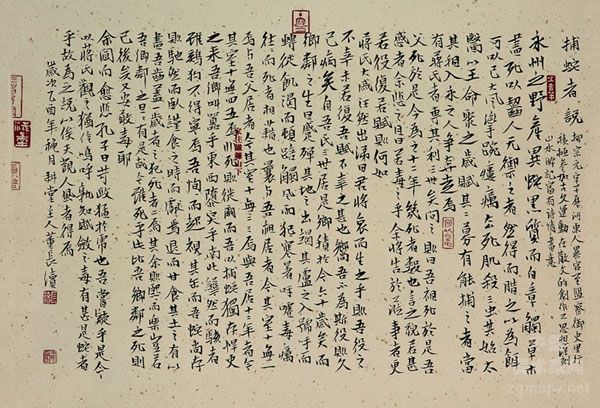 捕蛇者說
柳宗元字子厚河東人累官至監察御史里行
積極參加古文運動在散文的創作上思想深刻
山水游記富有詩情畫意
永州之野產異蛇黑質而白章觸草木
盡死以齧人無御之者然得而腊之以為餌
可以已大風攣踠瘻癘去死肌殺三蟲其始太
醫以王命聚之歲賦其二募有能捕之者當
其租入永之人爭奔走焉
有蔣氏者專其利三世矣問之則曰吾祖死於是吾
父死於是今吾嗣為之十二年幾死者數也言之貌若甚
慼者余悲之且曰若毒之乎余將告於蒞事者更
若役復若賦則何如
蔣氏大戚汪然出涕曰君將哀而生之乎則吾役之
不幸未若復吾賦不幸之甚也嚮吾不為斯役則久
已病矣自吾氏三世居是鄉積於今六十歲矣而
鄉鄰之生日蹙殫其地之出竭其廬之入號呼而
轉徙飢渴而頓踣觸風雨犯寒暑呼噓毒癘
往往而死者相藉也曩與吾祖居者今其室十無一
焉與吾父居者今其室十無二三焉與吾居十二年者今
其室十無四五焉非死則徙爾而吾以捕蛇獨存悍吏
之來吾鄉叫囂乎東西隳突乎南北譁然而駭者
雖雞狗不得寧焉吾恂恂而起視其缶而吾蛇尚存
則弛然而臥謹食之時而獻焉退而甘食其土之有以
盡吾齒蓋一歲之犯死者二焉其餘則熙熙而樂豈若
吾鄉鄰之旦旦有是哉今雖死乎此比吾鄉鄰之死則
已後矣又安敢毒耶
余聞而愈悲孔子曰苛政猛於虎也吾嘗疑乎是今
以蔣氏觀之猶信嗚呼孰知賦斂之毒有甚是蛇者
乎故為之說以俟夫觀人風者得焉
歲次乙酉年月耕堂主人董長
zgmsrw.net